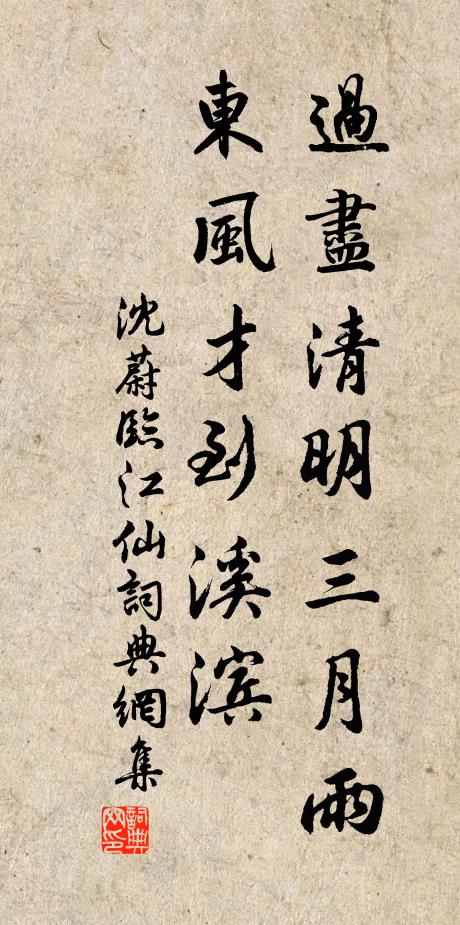 過盡清明三月雨
東風才到溪濱
沈蔚臨江仙詞典網集
詞典
网印